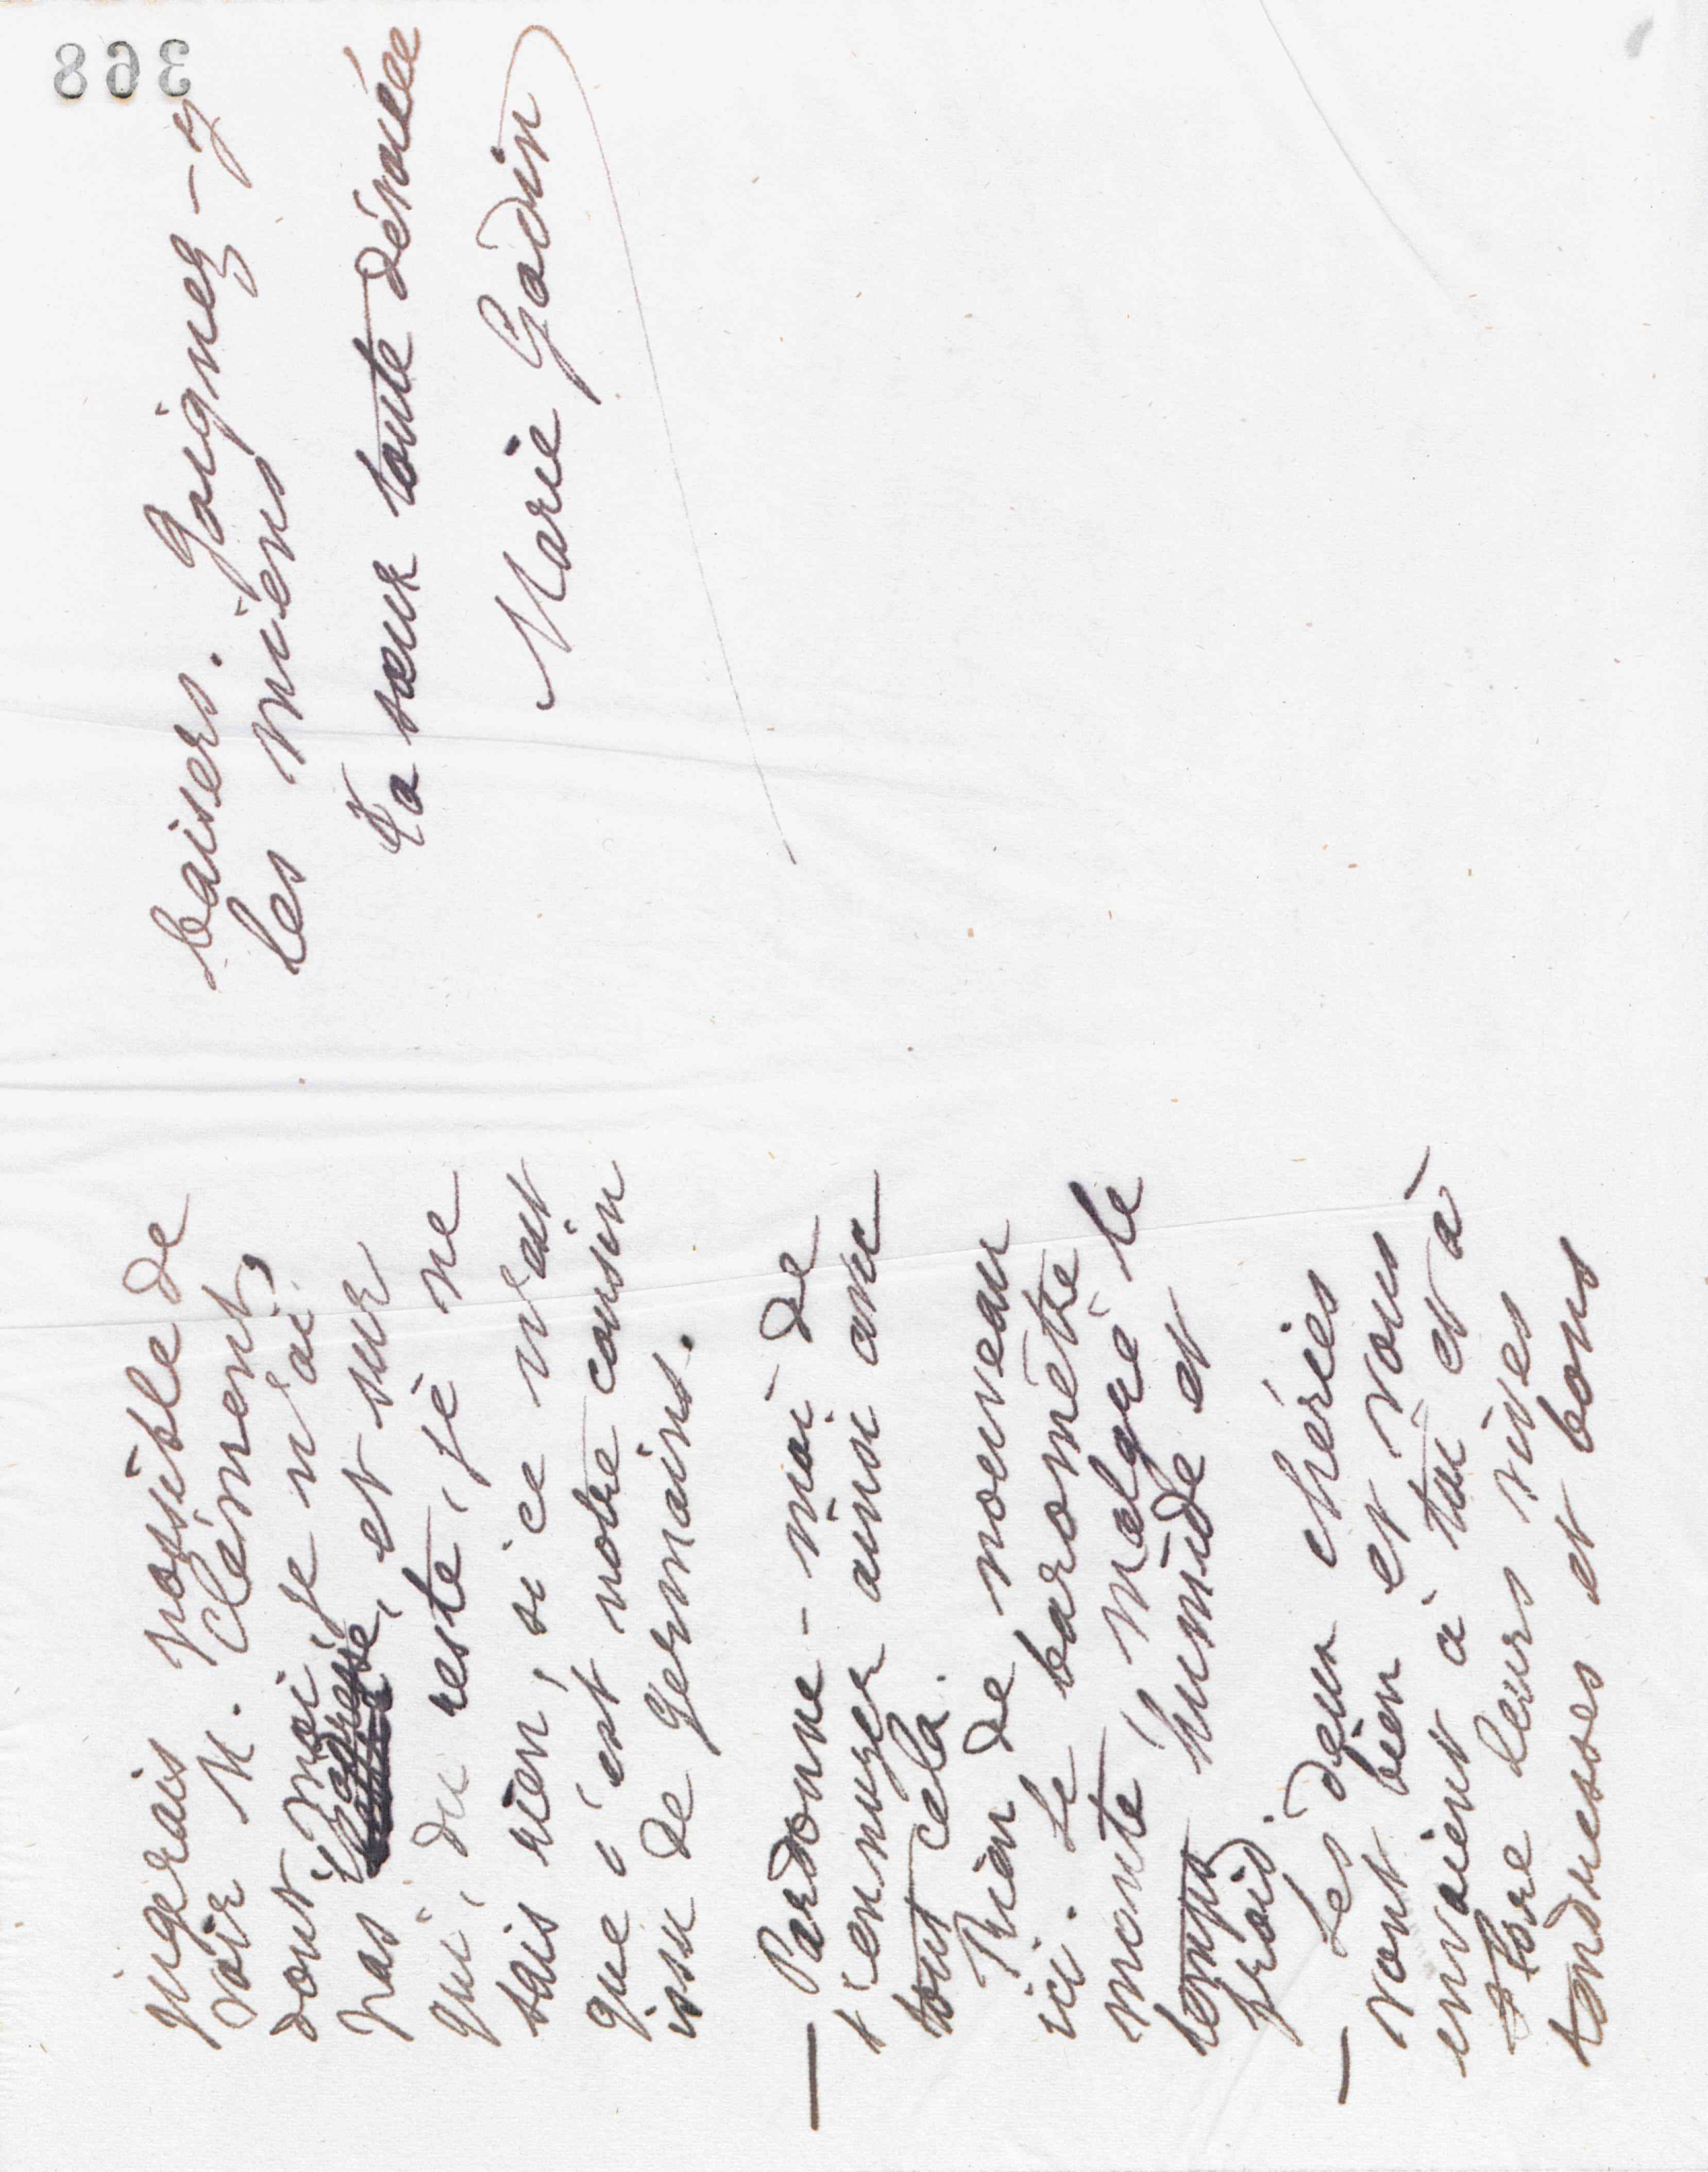 jugerais possible de
voir M. Clément,
dont moi je n'ai
pas l'adresse, et sur
qui, du reste, je ne
sais rien, si ce n'est
que c'est notre cousin
issu de germains.
— Pardonne-moi de
t'ennuyer ainsi avec
tout cela.
Rien de nouveau
ici. Le baromètre
monte malgré le
temps humide et
froid.
— Les deux chéries
vont bien et vous
envoient à toi et à
Flore leurs vives
tendresses et bons
baisers. Joignez-y
les miens
Ta sœur toute dévouée
Marie Godin
368